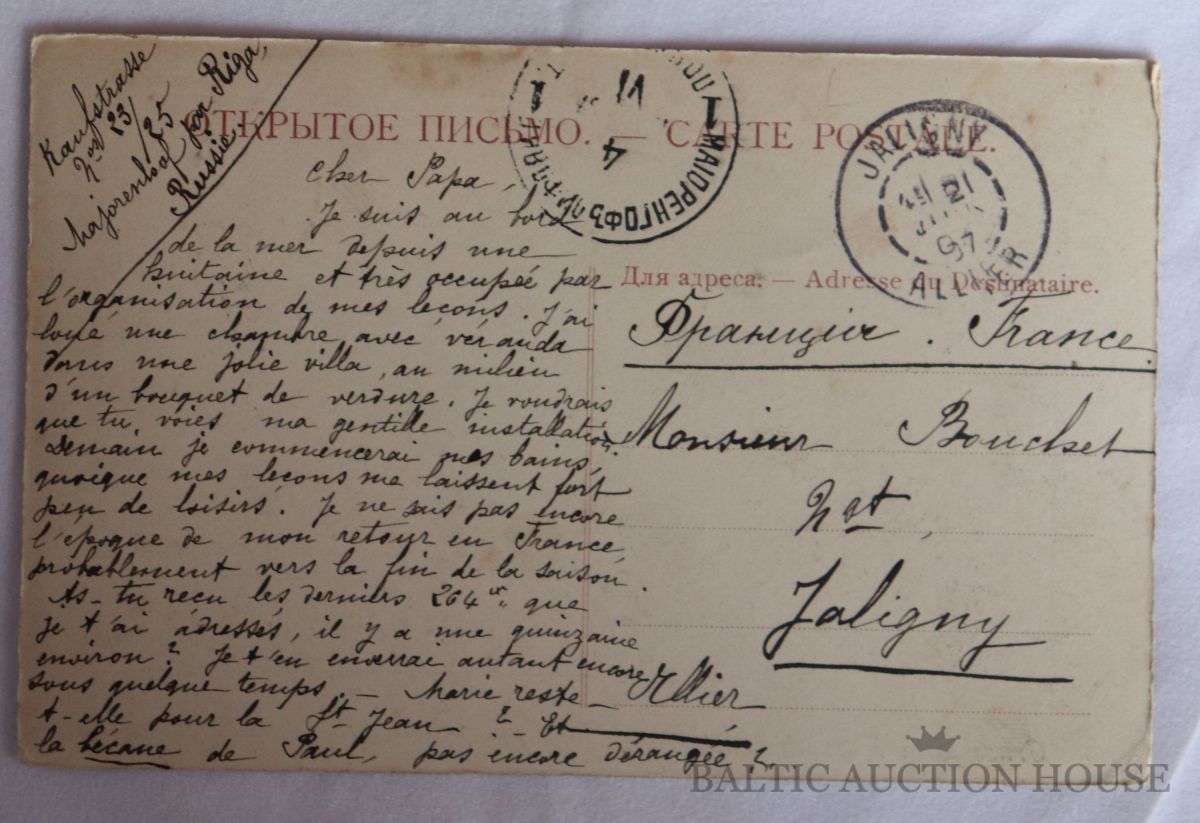 Kaufstrasse
Nos 23/25
Majorenhof par Riga,
Russie
ОТКРЫТОЕ ПИСЬМО. — CARTE POSTALE.
МАІОРЕНГОФЪ
1
VI
4
JALIGNY
21
07
ALLIER
Cher Papa,
Je suis au bord
de la mer depuis une
huitaine et très occupée par
l'organisation de mes leçons. J'ai
loué une chambre avec véranda
dans une jolie villa, au milieu
d'un bouquet de verdure. Je voudrais
que tu voies ma gentille installation.
Demain je commencerai mes bains,
quoique mes leçons me laissent fort
peu de loisirs. Je ne sais pas encore
l'époque de mon retour en France,
probablement vers la fin de la saison.
As-tu reçu les derniers 264 que
je t'ai adressés, il y a une quinzaine
environ? Je t'en enverrai autant encore
sous quelque temps. — Marie reste-
t-elle pour la St Jean? — Et
la bécane de Paul, pas encore dérangée?
Для адреса. — Adresse du Destinataire.
Франція. France.
Monsieur Bouchet
Not,
Jaligny
Allier
BALTIC AUCTION HOUSE